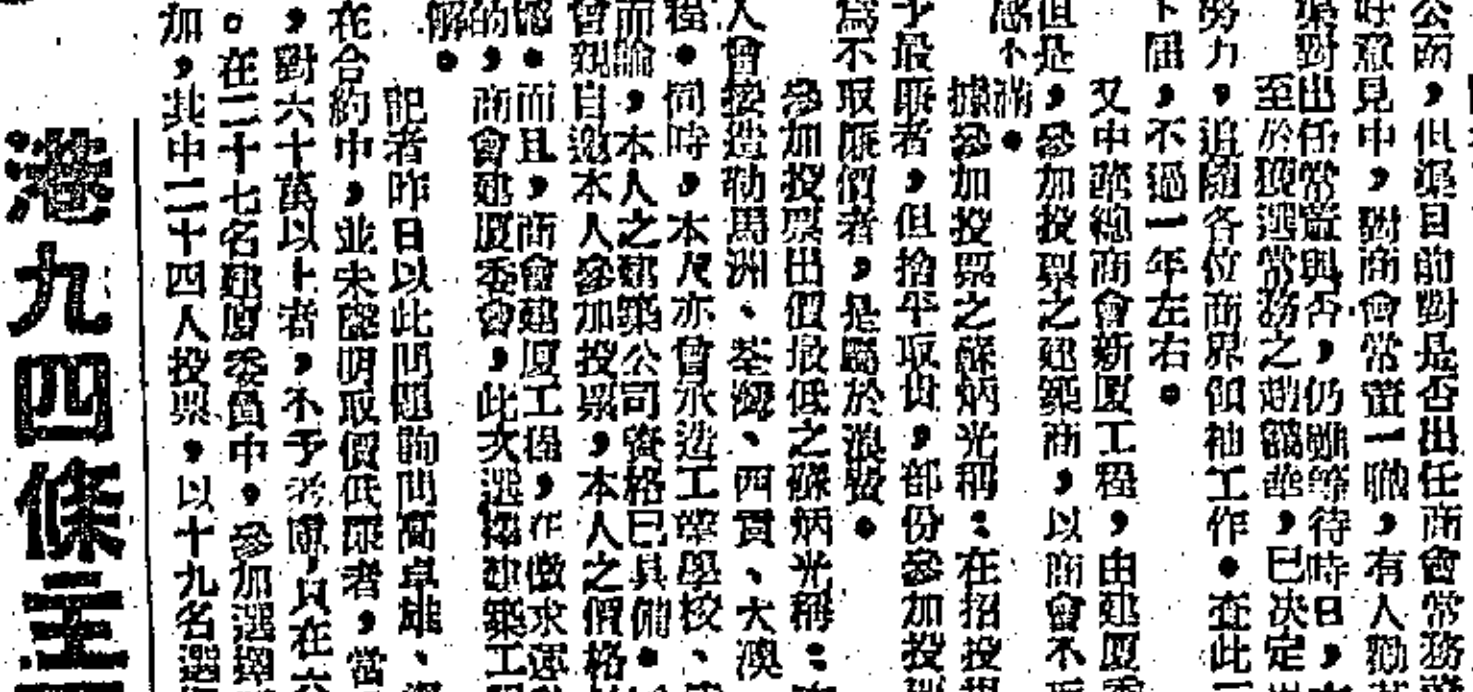 公函，但渠目前對是否出任商會常務
好意見中，對商會常董一職，有人勸
渠對出任常董與否，仍雖等待時日，
至於獲選常務之趙
已决定
努力，追隨各位商界領袖工作。查此
下屆，不過一年左右。
又中華總商會新厦工程，由建厦委
但是，參加投票之建築商，以商會不
感不滿。
據參加投票之蘇炳光稱：在招投
予最厰者，但捨平取貴，部份參加投
爲不取厰價者，是屬於浪費。
參加投票出價最低之蘇炳光稱：
人會接造勒馬洲、荃灣、四貢、大澳
程。同時，本人亦曾承造工業學校、
而論，本人之建築公司資格已具備。
會親自邀本人參加投票，本人之價格
。而且，商會建厦工程，在徵求運
的，商會建厦委會，此次選擇建築工
解。
記者昨日以此問題詢問高卓雄、
在合約中，並未證明取價低厰者，當
，對六十萬以上者，不予考慮，只在六
。在二十七名建厦委員中，參加選擇
加，其中二十四人投票，以十九名選
港九四條主